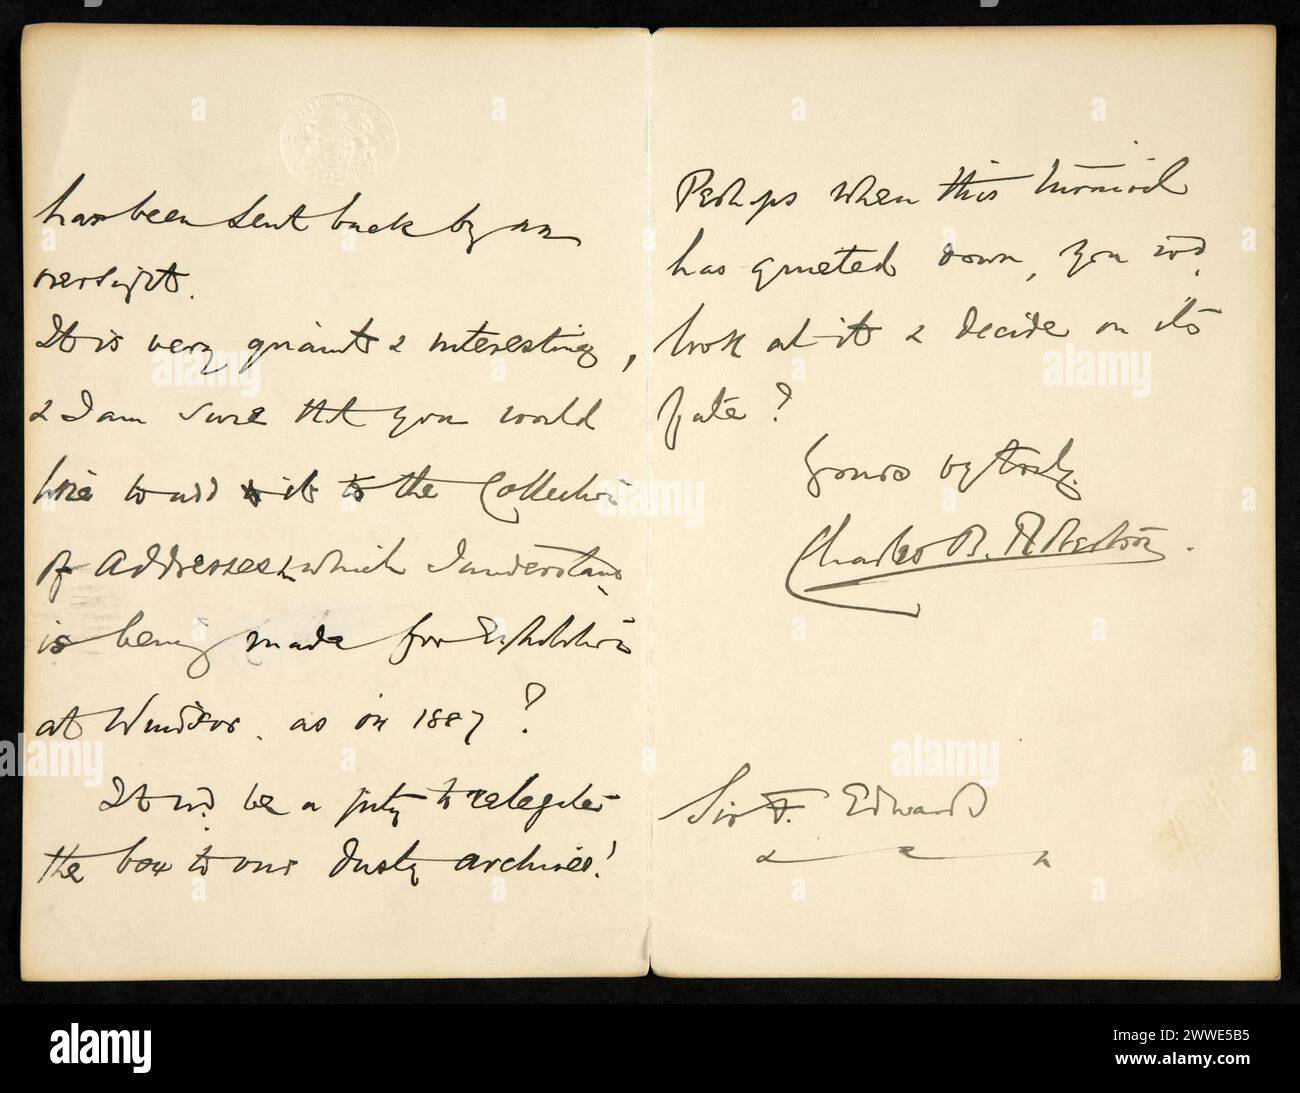 has been sent back by an
oversight.
It is very quaint & interesting,
& I am sure that you would
like to add it to the Collection
of Addresses which I understand
is being made for Exhibition
at Windsor. as in 1887?
It wd. be a pity to relegate
the box to our dusty archives!
Perhaps when this turmoil
has quieted down, you wd.
look at it & decide on its
fate?
Yours vy truly.
Charles B. Robertson.
Sir F. Edwards
alamy
alamy
alamy
alamy
alamy
alamy
alamy
a
a
a
a
a
Image ID: 2WWE5B5
www.alamy.com